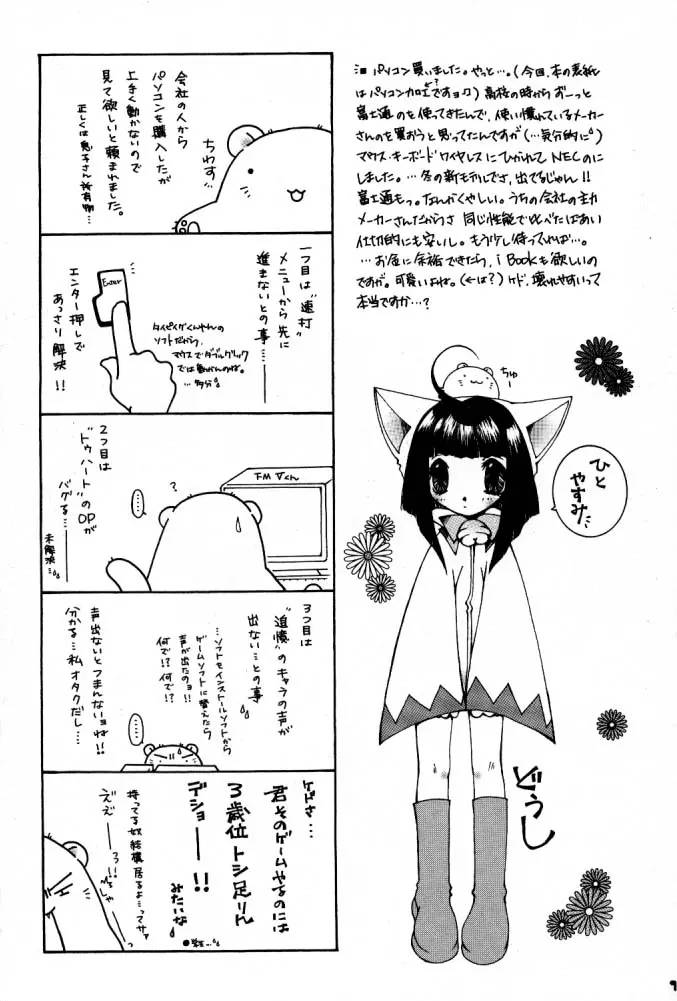 パソコン買いました。やっと…。(今回、本の表紙
はパソコン加工ですョ)高校の時からずーっと
富士通のを使ってきたんで、使い慣れているメーカー
さんのを買おうと思ってたんですが(…気分的に)
マウス・キーボードワイヤレスにひかれてNECのに
しました。…冬の新モデルでさ、出てるじゃん!!
富士通もっ。なんかくやしい。うちの会社の主力
メーカーさんだからさ 同じ性能で比べたばあい
仕切的にも安いし。もう少し待ってれば…。
…お金に余裕できたら、i Bookも欲しいの
ですが。可愛いよね。(←は?)ケド、壊れやすいって
本当ですか…?
会社の人から
パソコンを購入したが
上手く動かないので
見て欲しいと頼まれました。
正しくは息子さん所有物…
ちわす
1つ目は"連打"
メニューから先に
進まないとの事…
Enter
タイピングくんやんの
ソフトだから、
マウスでダブルクリック
では動かんのね。
…多分
エンター押しで
あっさり解決!!
2つ目は
"トゥハート"の
OPが
バグる…
未解決…
……
?
FMVくん
3つ目は
"追憶"のキャラの声が
出ない…との事
…ソフトをインストールソフトから
ゲームソフトに替えたら
声が出たのョ!!
何で!?何で!?
声出ないとつまんないョね!!
分かる…私オタクだし…
……
ケドさ…
君そのゲームやるのには
3歳位トシ足りん
デショーー!!
みたいな
持ってる奴結構居るよ…ってサァ
ええーー!!
ちゅー
ひと
やすみ
どうし